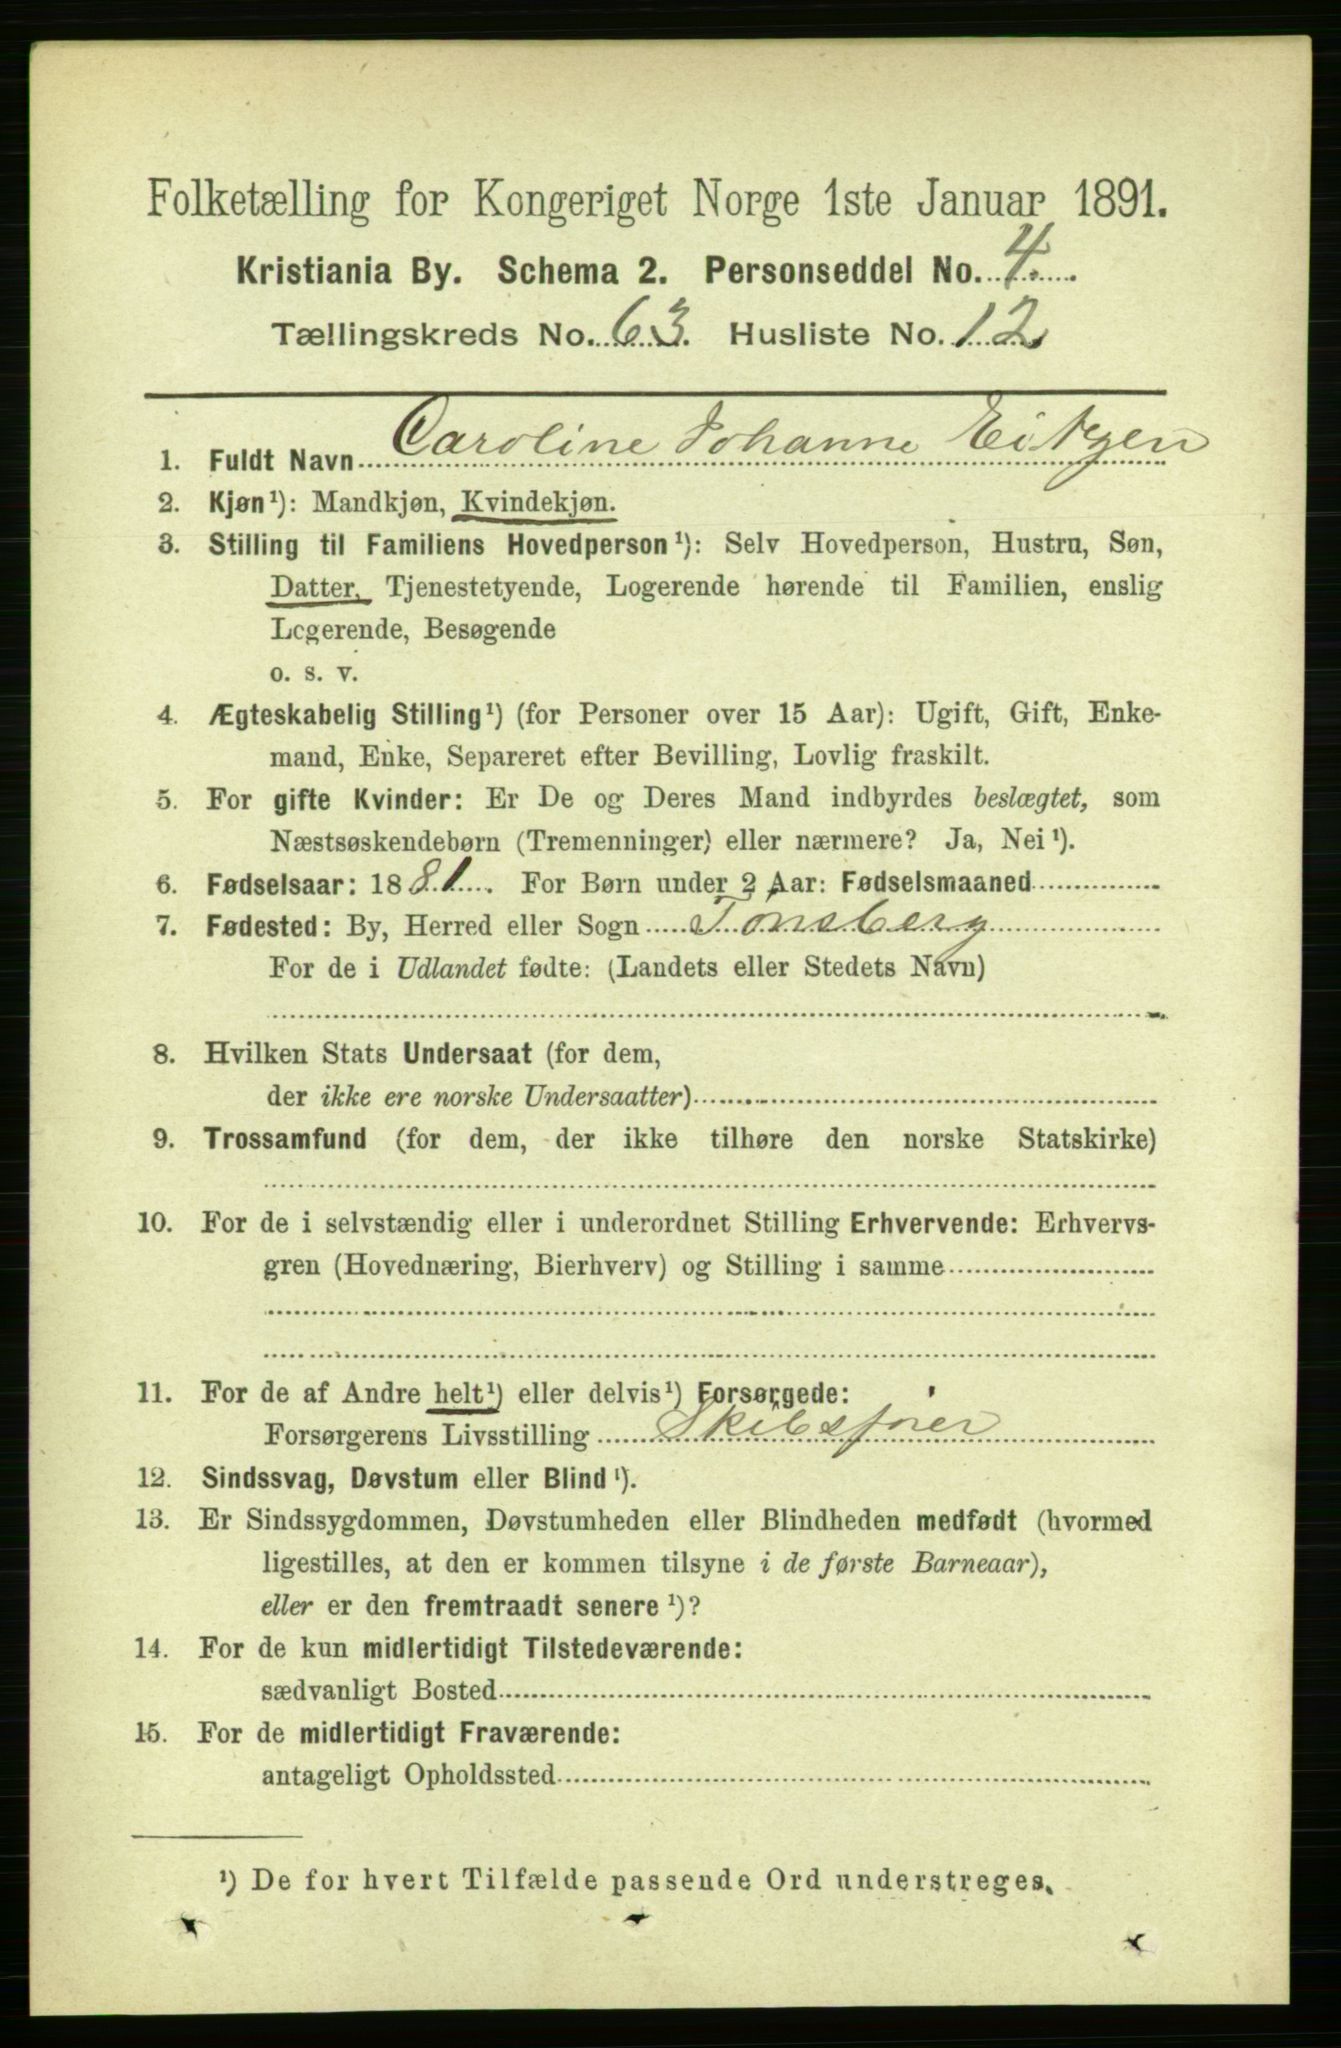 Folketælling for Kongeriget Norge 1ste Januar 1891.
Kristiania By. Schema 2. Personseddel No. 4.
Tællingskreds No. 63. Husliste No. 12
1. Fuldt Navn Caroline Johanne Eitzen
2. Kjøn¹): Mandkjøn, Kvindekjøn.
3. Stilling til Familiens Hovedperson¹): Selv Hovedperson, Hustru, Søn,
Datter, Tjenestetyende, Logerende hørende til Familien, enslig
Logerende, Besøgende
o. s. v.
4. Ægteskabelig Stilling¹) (for Personer over 15 Aar): Ugift, Gift, Enke-
mand, Enke, Separeret efter Bevilling, Lovlig fraskilt.
5. For gifte Kvinder: Er De og Deres Mand indbyrdes beslægtet, som
Næstsøskendebørn (Tremenninger) eller nærmere? Ja, Nei¹).
6. Fødselsaar: 1881. For Børn under 2 Aar: Fødselsmaaned
7. Fødested: By, Herred eller Sogn Tonsberg
For de i Udlandet fødte: (Landets eller Stedets Navn)
8. Hvilken Stats Undersaat (for dem,
der ikke ere norske Undersaatter)
9. Trossamfund (for dem, der ikke tilhøre den norske Statskirke)
10. For de i selvstændig eller i underordnet Stilling Erhvervende: Erhvervs-
gren (Hovednæring, Bierhverv) og Stilling i samme
11. For de af Andre helt¹) eller delvis¹) Forsørgede:
Forsørgerens Livsstilling Skibsfører
12. Sindssvag, Døvstum eller Blind¹).
13. Er Sindssygdommen, Døvstumheden eller Blindheden medfødt (hvormed
ligestilles, at den er kommen tilsyne i de første Barneaar),
eller er den fremtraadt senere¹)?
14. For de kun midlertidigt Tilstedeværende:
sædvanligt Bosted
15. For de midlertidigt Fraværende:
antageligt Opholdssted
¹) De for hvert Tilfælde passende Ord understreges.